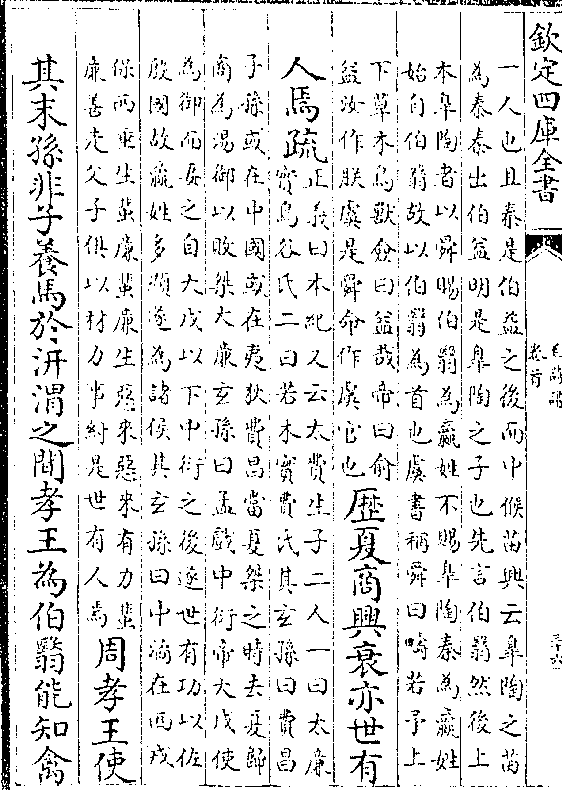 欽定四庫全書
毛詩譜
卷首
三十六
一人也且秦是伯益之後而中候苗興云臯陶之苗
為秦秦出伯益明是臯陶之子也先言伯翳然後上
本臯陶者以舜賜伯翳為嬴姓不賜臯陶秦為嬴姓
始自伯翳故以伯翳為首也虞書稱舜曰疇若予上
下草木鳥獸僉曰益哉帝曰俞
益汝作朕虞是舜命作虞官也
歴夏商興衰亦世有
人焉疏
正義曰本紀又云太費生子二人一曰太廉
實鳥谷氏二曰若木實費氏其玄孫曰費昌
子孫或在中國或在夷狄費昌當夏桀之時去夏歸
商為湯御以敗桀大廉玄孫曰孟戲中衍帝大戊使
為御而妻之自大戊以下中衍之後遂世有功以佐
殷國故嬴姓多顯遂為諸侯其玄孫曰中潏在西戎
保西垂生蜚廉蜚廉生惡來惡來有力蜚
廉善走父子俱以材力事紂是世有人焉
周孝王使
其末孫非子養馬於汧渭之間孝王為伯翳能知禽